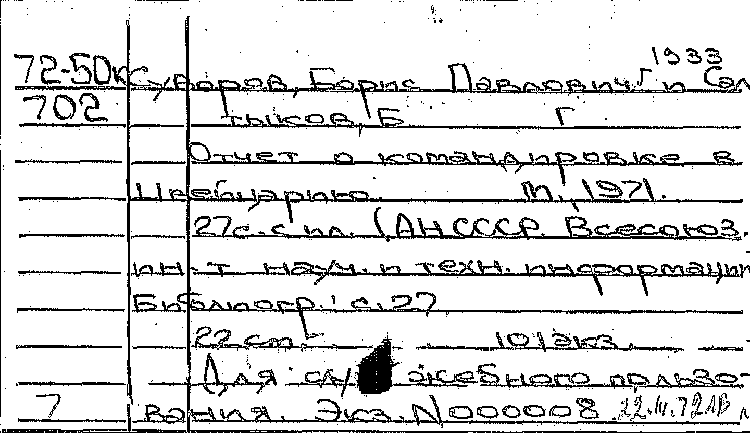 1933
72-50к Суворов, Борис Павлович г и Сал
702 тыков, Б Г
Отчет о командировке в
Швейцарию М., 1971.
27с. с ил. (АН СССР. Всесоюз.
ин-т науч. и техн. информации
Библиогр.: с. 27
22 см 101экз.
Для служебного пользо-
7 вания. Экз. N000008 22.IV.72